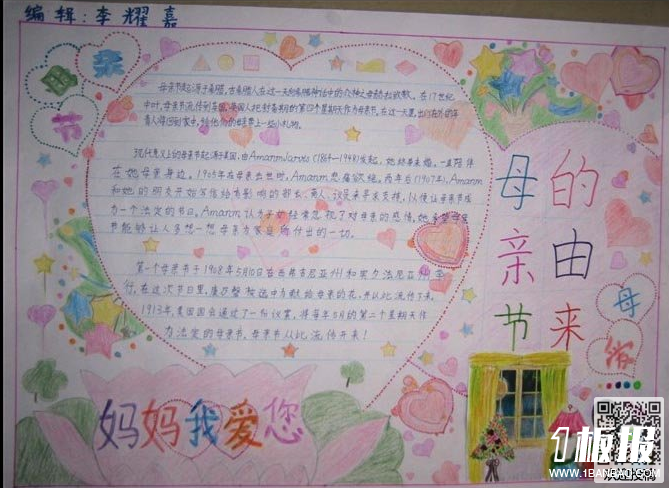 编辑:李耀嘉
母亲节
母亲节起源于希腊,古希腊人在这一天向希腊神话中的众神之母赫拉致敬。在17世纪
中叶,母亲节流传到英国,英国人把封斋期的第四个星期天作为母亲节。在这一天里,出门在外的年
青人将回到家中,给他们的母亲带上一些小礼物。
现代意义上的母亲节起源于美国,由AmanmJarvis(1864—1948)发起,她终身未婚,一直陪伴
在她母亲身边。1905年在母亲去世时,Amanm悲痛欲绝。两年后(1907年),Amanm
和她的朋友开始写信给有影响的部长、商人、议员来寻求支持,以便让母亲节成
为一个法定的节日。Amanm认为子女经常忽视了对母亲的感情,她希望母亲
节能够让人多想一想母亲为家庭所付出的一切。
第一个母亲节于1908年5月10日在西弗吉尼亚州和宾夕法尼亚州举
行,在这次节日里,康乃馨被选中为献给母亲的花,并以此流传下来。
1913年,美国国会通过了一份议案,将每年5月的第二个星期天作
为法定的母亲节。母亲节从此流传开来!
母亲节
的由来
妈妈我爱您
板报
WWW.1BANBAO.COM
欢迎投稿